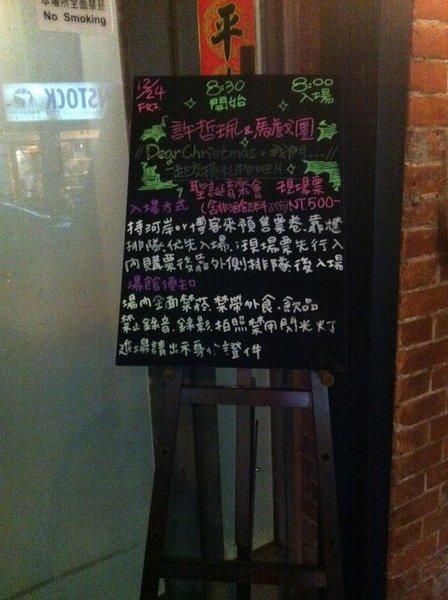 本場所全面禁菸
No Smoking
平
NSTOCK
12/24 8:30 8:00
FRI 開始 入場
許哲珮&馬戲團
Dear Christmas,我們
一起交換禮物吧!!
聖誕音樂會 現場票
入場方式 (含非酒飲料乙份)NT.500-
持河岸or博客來預售票卷,靠牆
排隊,優先入場,現場票先行入
內購票後靠外側排隊後入場
場館須知
場內全面禁菸,禁帶外食、飲品
禁止錄音、錄影,拍照禁用閃光灯
進場請出示身份證件